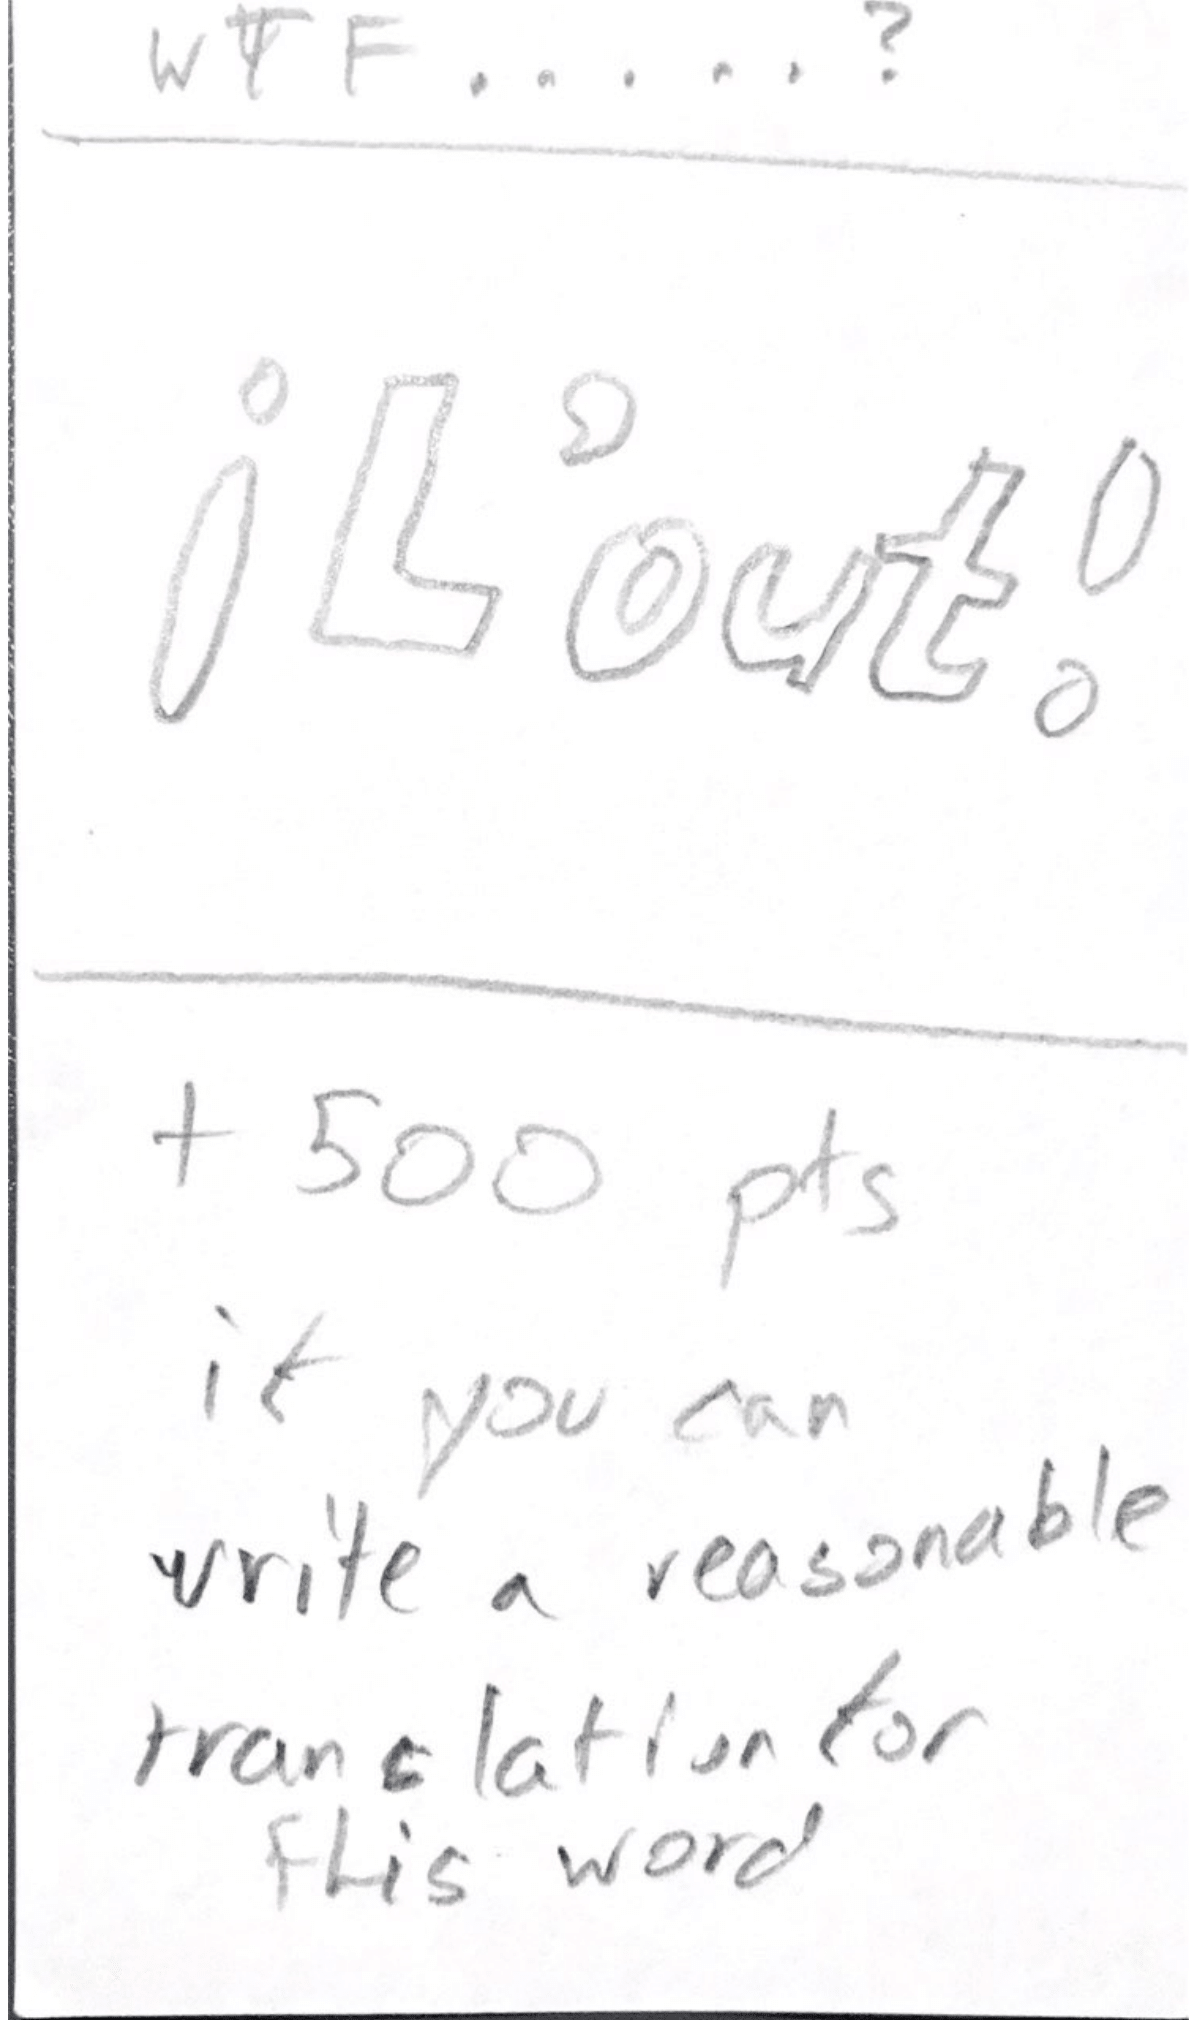 WTF.....?
¡L'out!
+ 500 pts
if you can
write a reasonable
translation for
this word